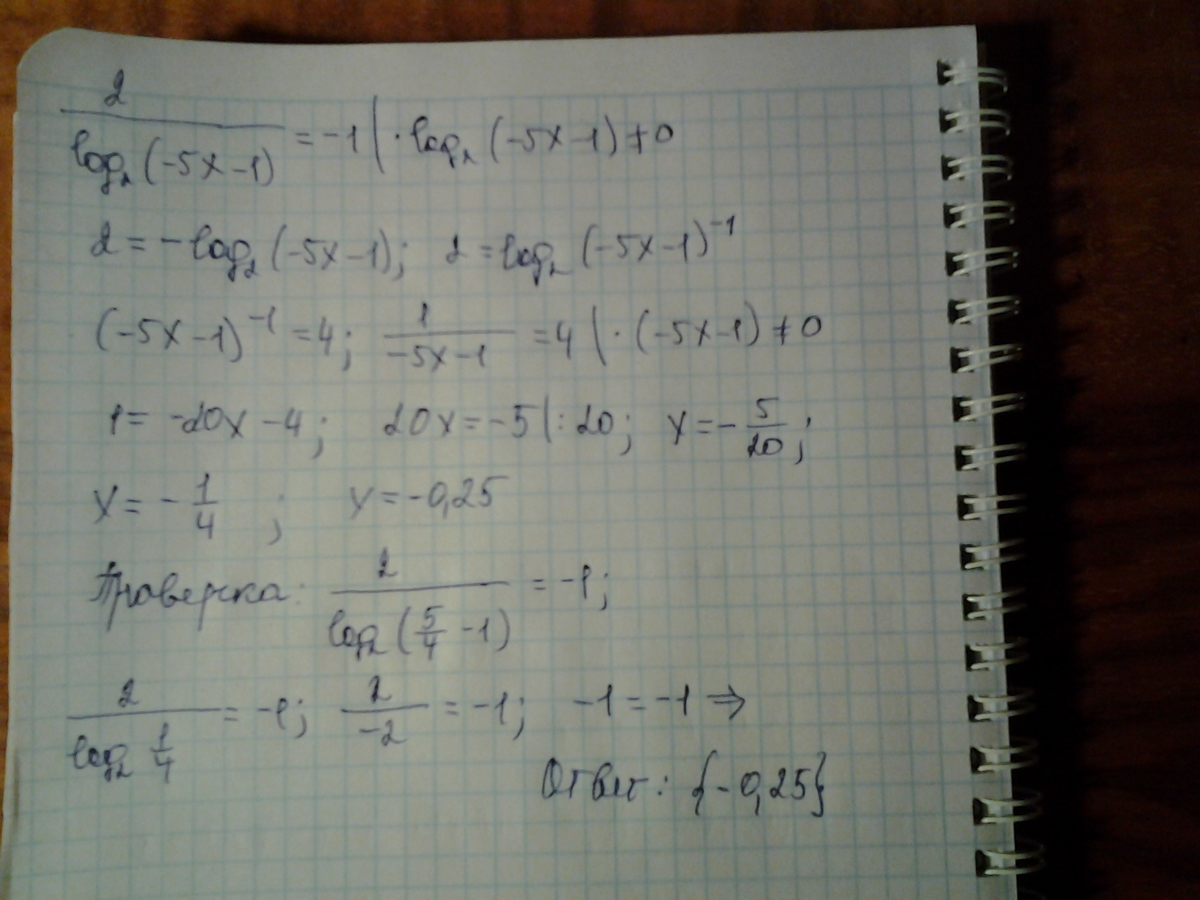 2/log₂(-5x-1) = -1 | · log₂(-5x-1) ≠ 0
2 = -log₂(-5x-1); 2 = log₂(-5x-1)⁻¹
(-5x-1)⁻¹ = 4; 1/(-5x-1) = 4 | · (-5x-1) ≠ 0
1 = -20x - 4; 20x = -5 | : 20; x = -5/20;
x = -1/4; x = -0,25
Проверка: 2/log₂(5/4 - 1) = -1;
2/log₂ 1/4 = -1; 2/-2 = -1; -1 = -1 ⇒
Ответ: {-0,25}